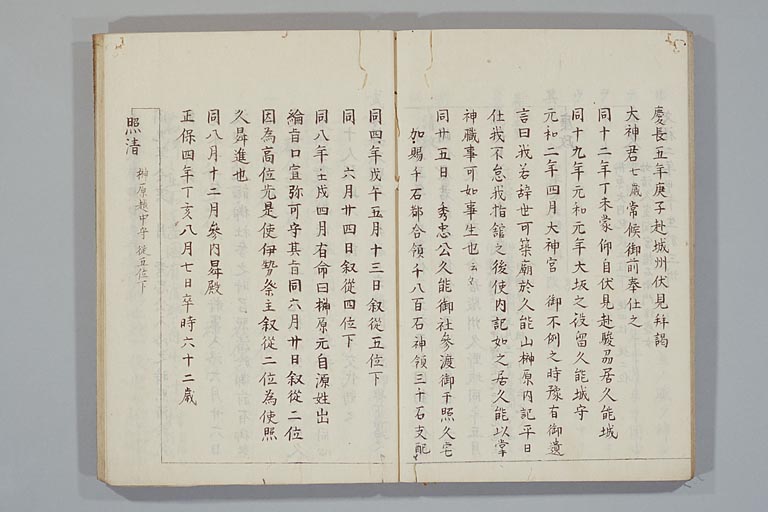 慶長五年庚子赴城州伏見拜謁
大神君七歲常候御前奉仕之
同十二年丁未蒙仰自伏見赴駿劦居久能城
同十九年元和元年大坂之役留久能城守
元和二年四月大神宮 御不例之時豫有御遺
言曰我若辞世可築廟於久能山榊原内記平日
仕我不怠我指舘之後使内記如之居久能以掌
神職事可如事生也云々
同廿五日 秀忠公久能御社參渡御于照久宅
加賜千石都合領千八百石神領三千石支配
同四年戊午五月十三日叙從五位下
同十年 六月廿四日叙從四位下
同八年壬戌四月有命曰榊原元自源姓出
綸旨口宣弥可守其旨同六月廿日叙從二位
因為高位先是使伊勢祭主叙從二位為使照
久昇進也
同八月十二日參内昇殿
正保四年丁亥八月七日卒時六十二歲
照清
榊原越中守 從五位下